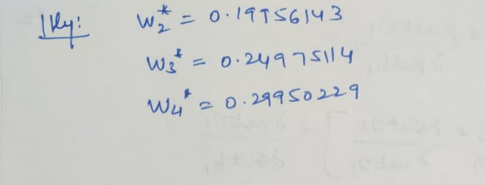 |||ly: W₂* = 0.19956143
W₃* = 0.24975114
W₄* = 0.29950229